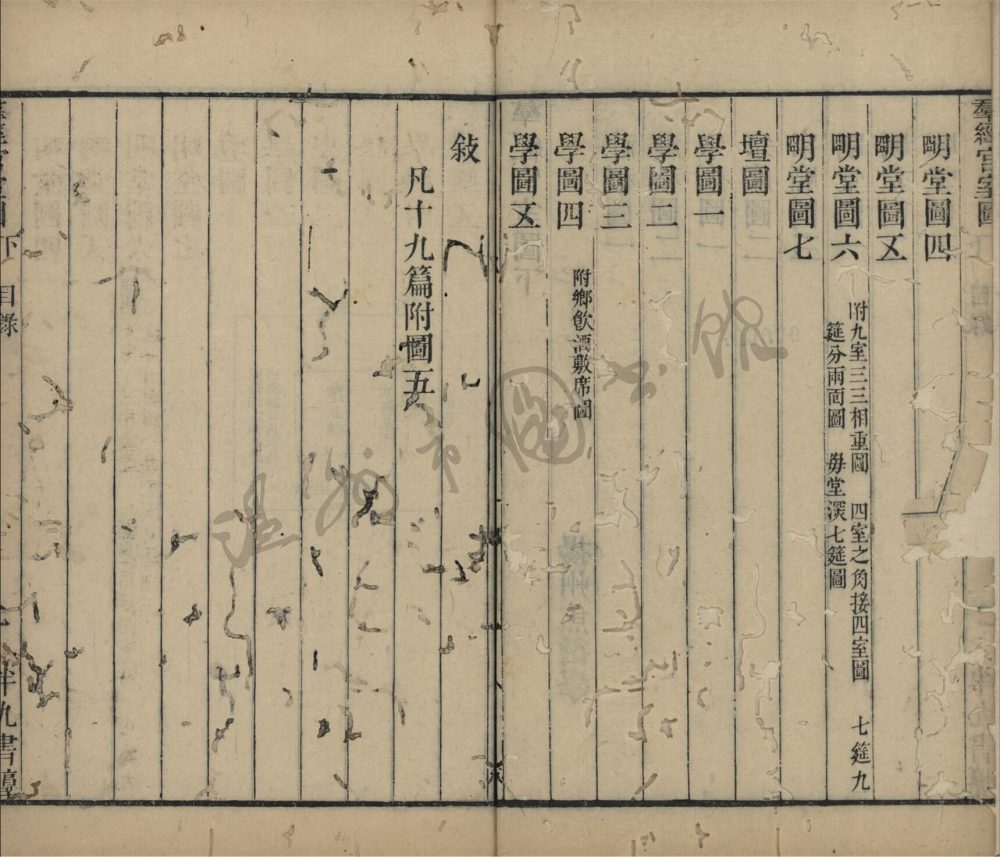 羣經宮室圖
明堂圖四
明堂圖五
明堂圖六
附九室三三相重圖 四室之角接四室圖 七筵九
筵分兩面圖 每堂深七筵圖
明堂圖七
壇圖
學圖一
學圖二
學圖三
學圖四
附鄉飲酒敷席圖
學圖五
敍
凡十九篇附圖五
下 目錄
半九書塾
溫州市圖書館